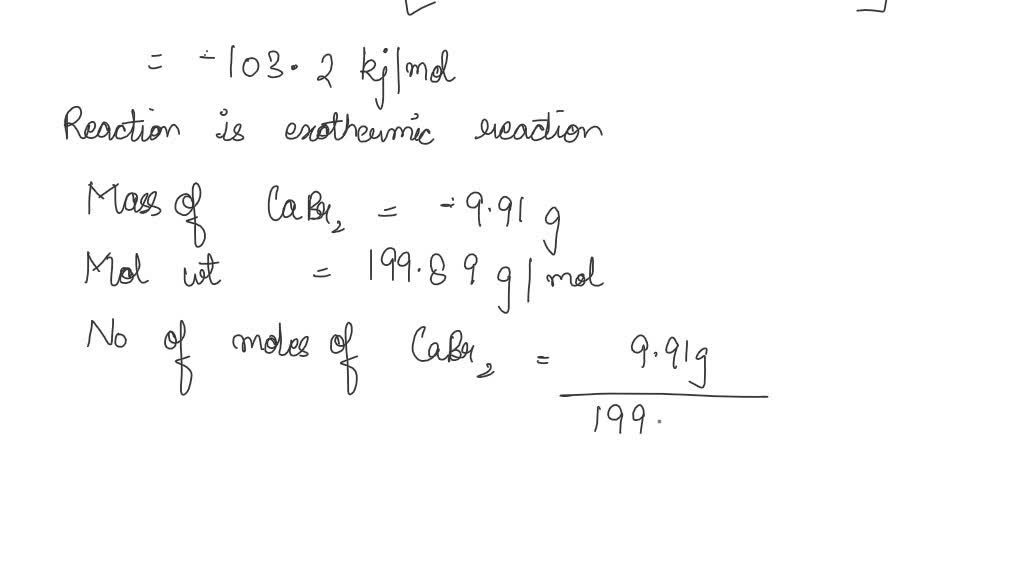 = -103.2 kj/mol
Reaction is exothermic reaction
Mass of CaBr₂ = -9.91 g
Mol wt = 199.89 g/mol
No of moles of CaBr₂ = 9.91g
199.